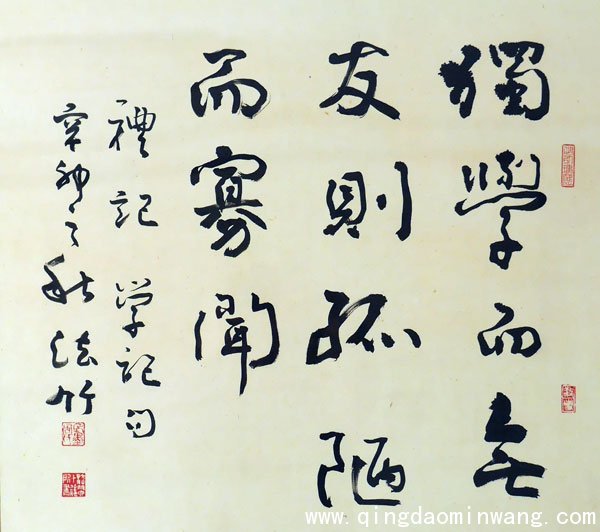 獨學而無
友則孤陋
而寡聞
禮記 學記句
辛卯之秋 竹
www.qingdaominwang.com